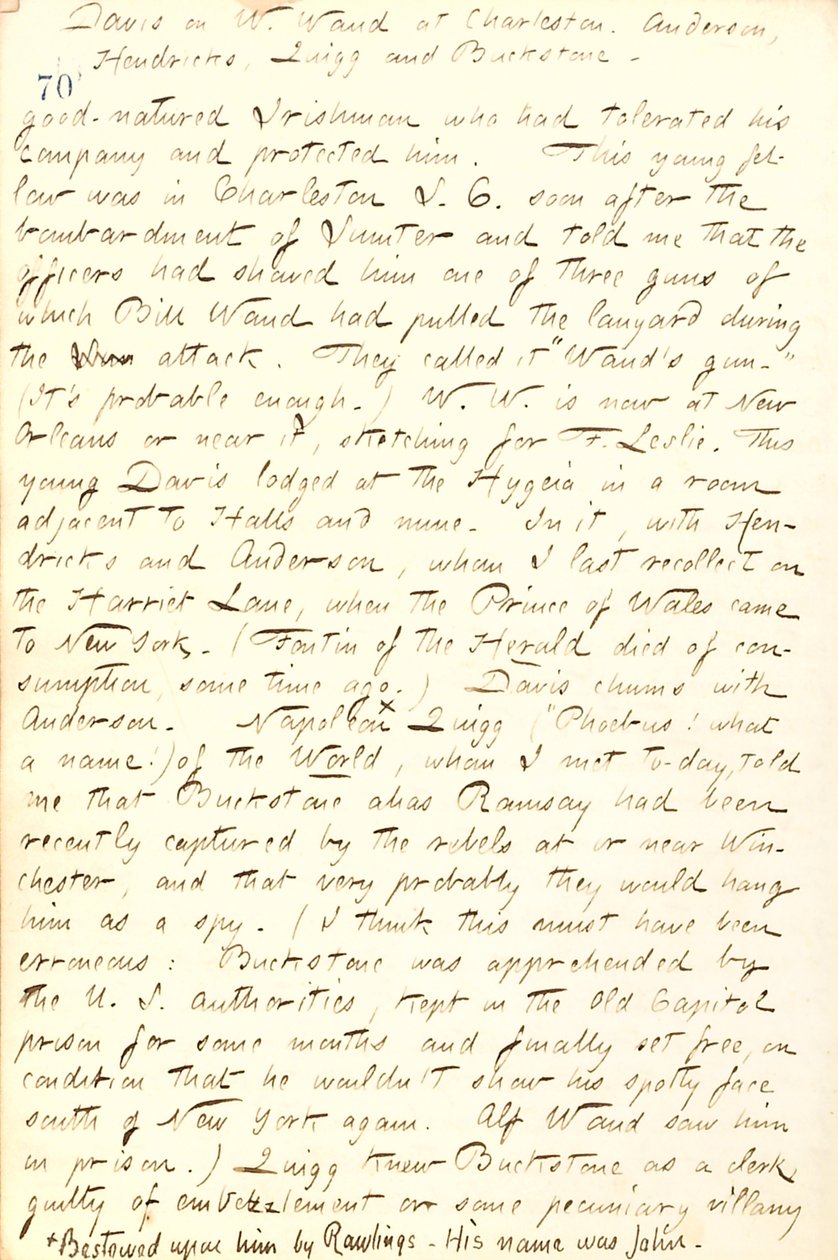 Davis on W. Waud at Charleston. Anderson,
Hendricks, Quigg and Buckstone -
70
good-natured Irishman who had tolerated his
company and protected him. This young fel-
low was in Charleston S. C. soon after the
bombardment of Sumter and told me that the
officers had showed him one of three guns of
which Bill Waud had pulled the lanyard during
the attack. They called it "Waud's gun-"
(It's probable enough.) W. W. is now at New
Orleans or near it, sketching for F. Leslie. This
young Davis lodged at the Hygeia in a room
adjacent to Halls and mine. In it, with Hen-
dricks and Anderson, whom I last recollect on
the Harriet Lane, when the Prince of Wales came
to New York. (Fontin of the Herald died of con-
sumption, some time ago.) Davis chums with
Anderson. Napoleon x Quigg ("Phoebus! what
a name!") of the World, whom I met to-day, told
me that Buckstone alias Ramsay had been
recently captured by the rebels at or near Win-
chester, and that very probably they would hang
him as a spy. (I think this must have been
erroneous: Buckstone was apprehended by
the U. S. authorities, kept in the Old Capitol
prison for some months and finally set free, on
condition that he wouldn't show his spotty face
south of New York again. Alf Waud saw him
in prison.) Quigg knew Buckstone as a clerk,
guilty of embezzlement or some pecuniary villany
x Bestowed upon him by Rawlings - His name was John.